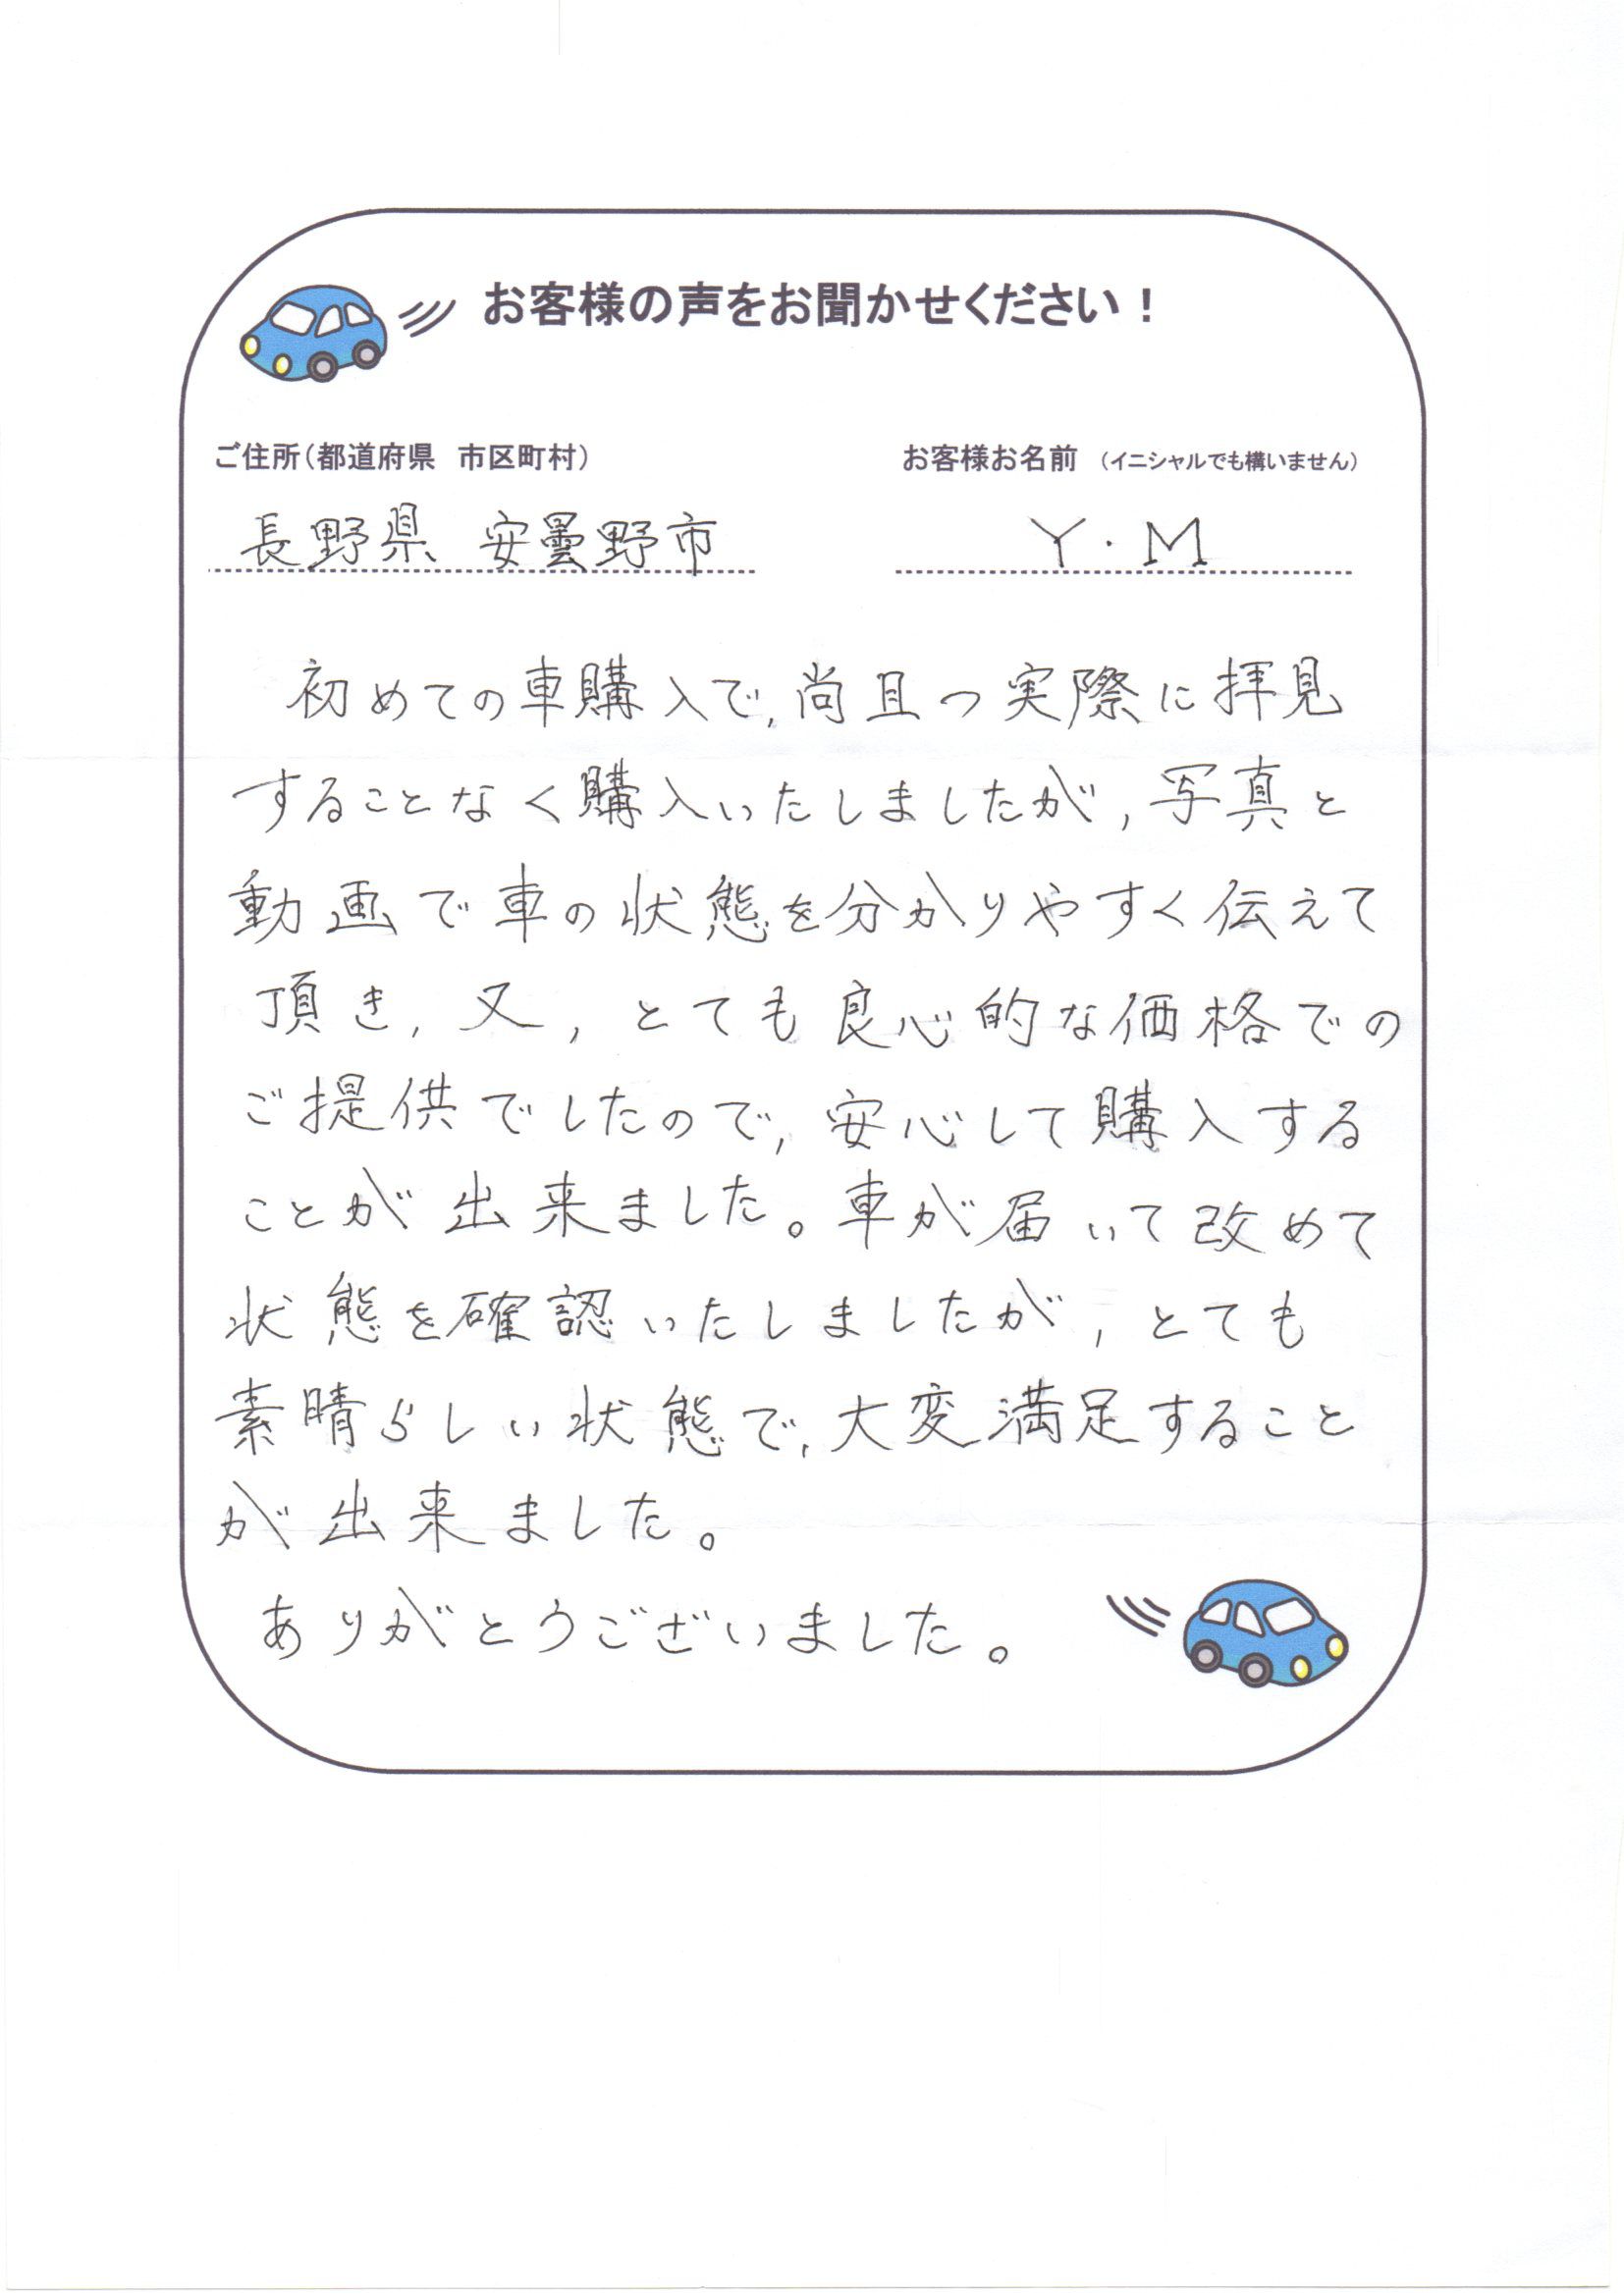 お客様の声をお聞かせください!
ご住所(都道府県 市区町村)
お客様お名前 (イニシャルでも構いません)
長野県 安曇野市
Y・M
初めての車購入で,尚且つ実際に拝見
することなく購入いたしましたが,写真と
動画で車の状態を分かりやすく伝えて
頂き,又,とても良心的な価格での
ご提供でしたので,安心して購入する
ことが出来ました。車が届いて改めて
状態を確認いたしましたが,とても
素晴らしい状態で,大変満足すること
が出来ました。
ありがとうございました。